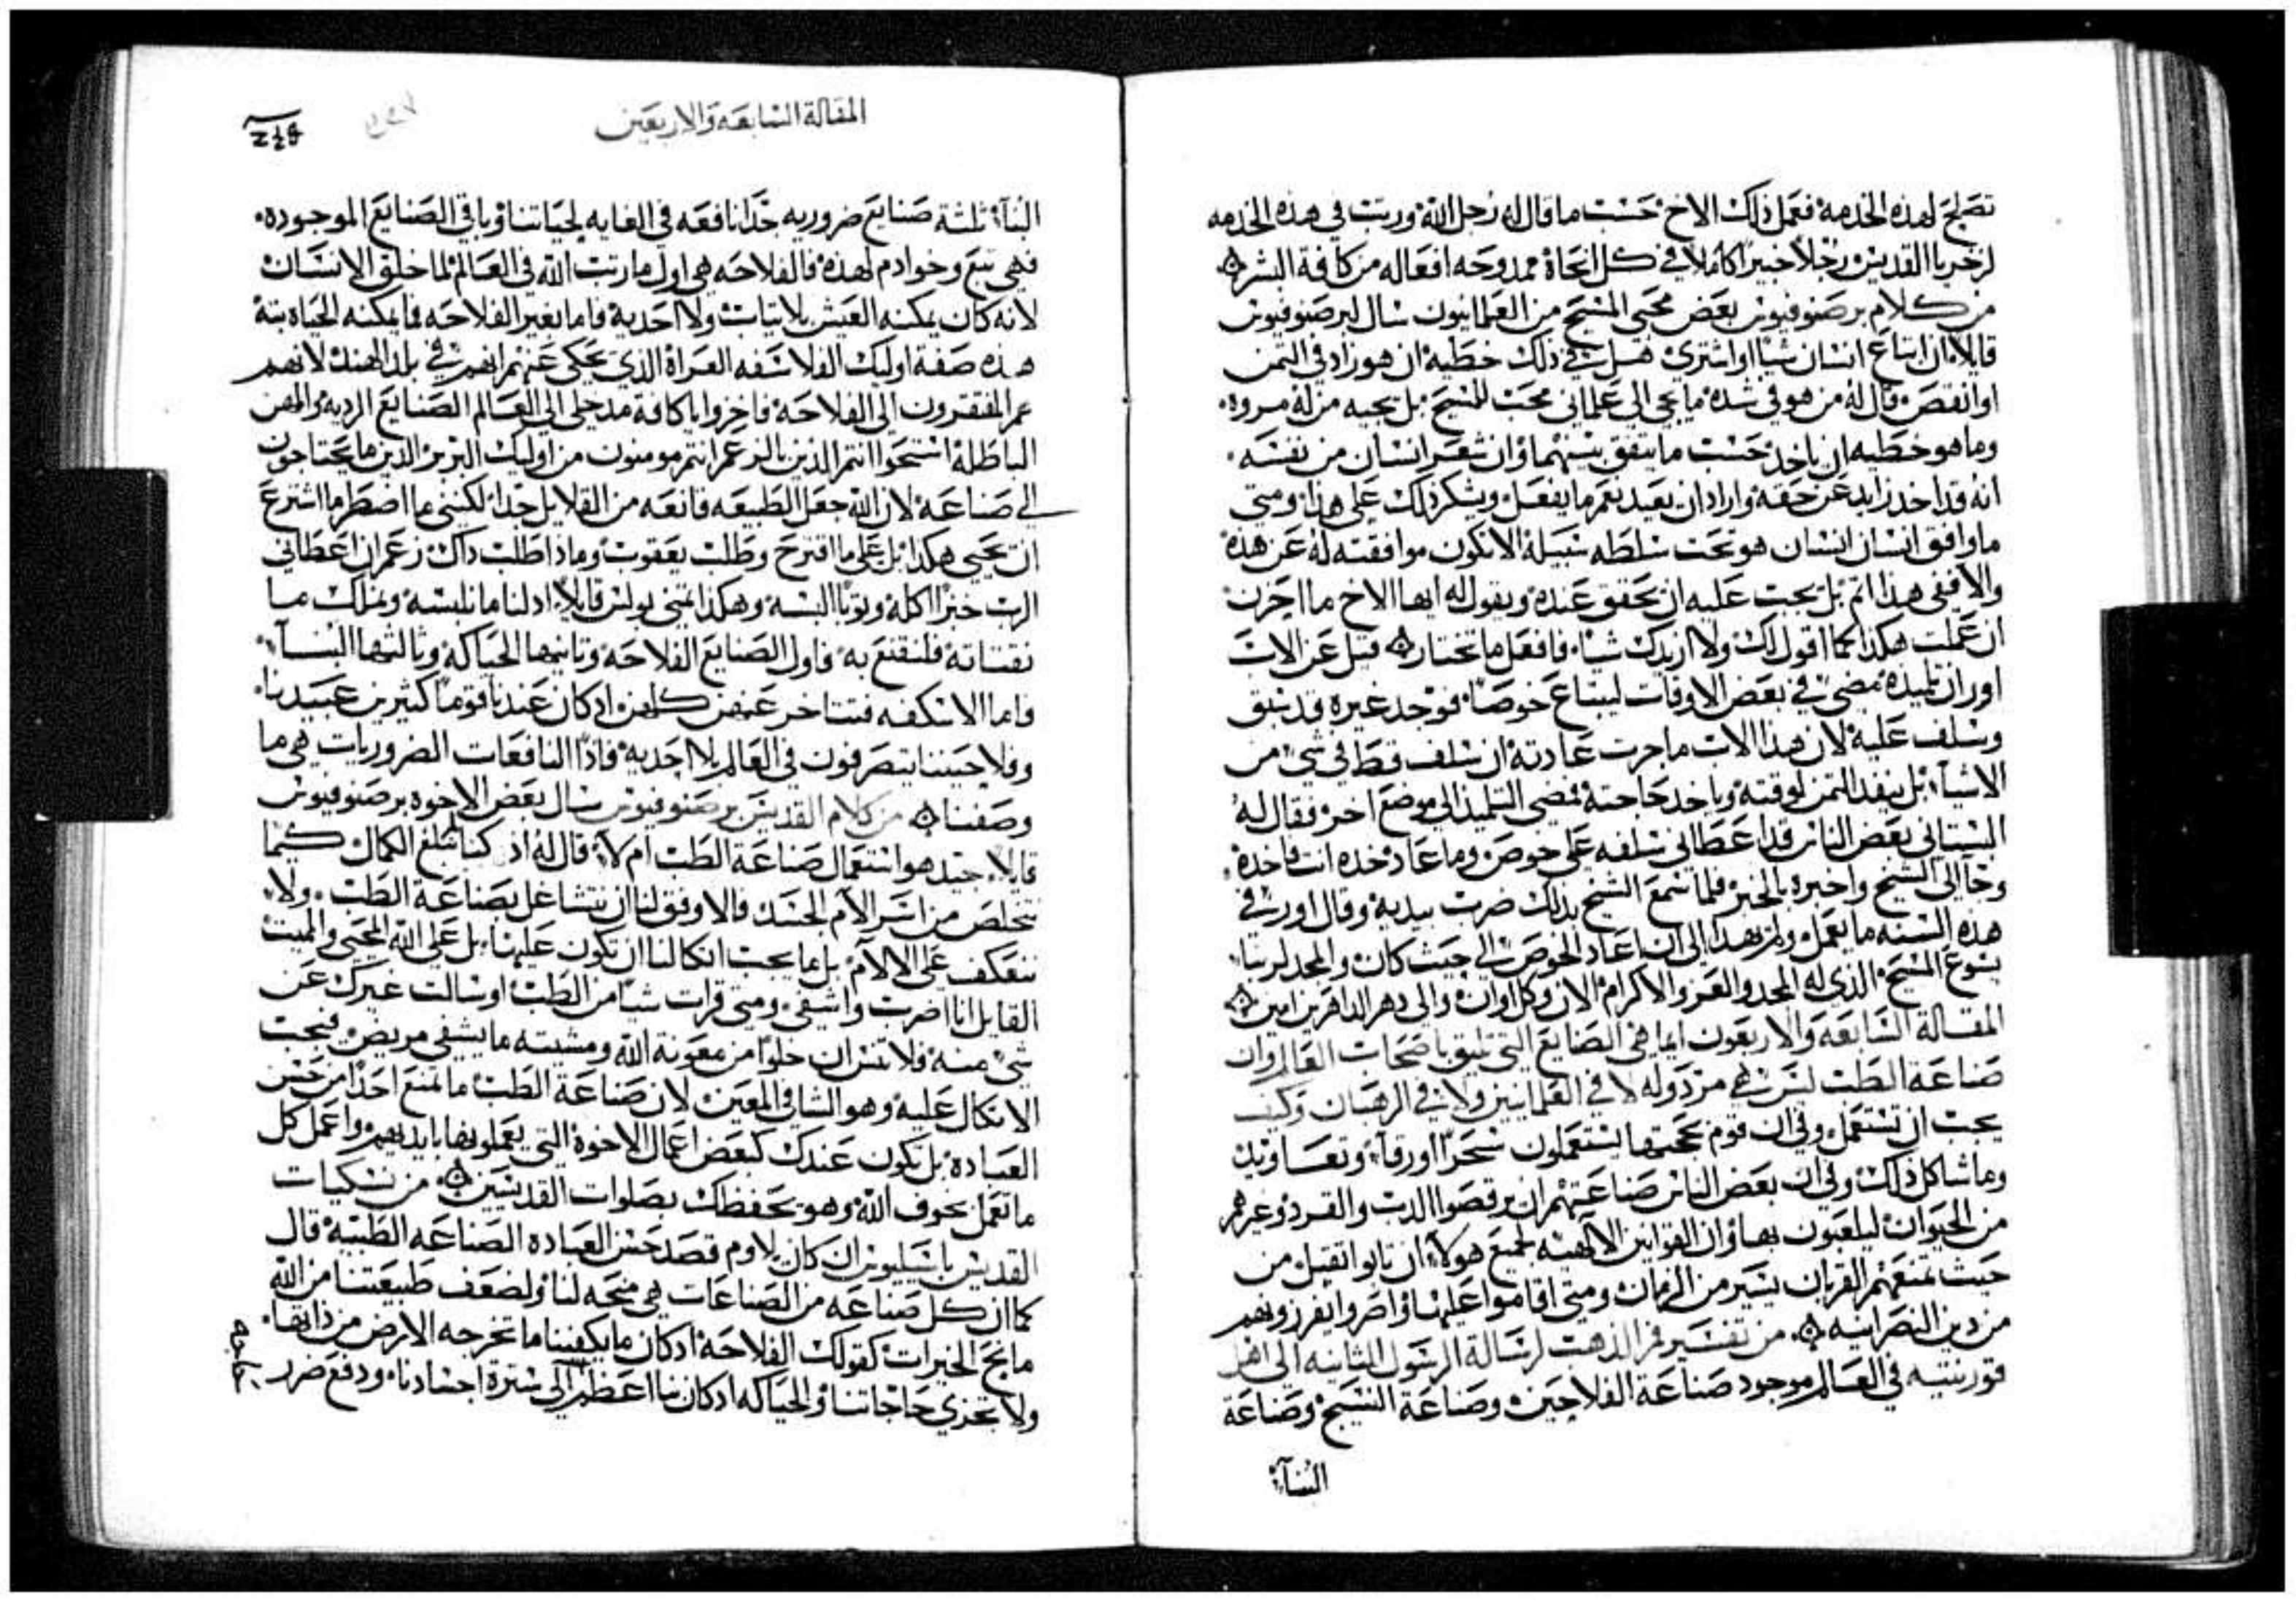 تصلح لهذه الخدمه فعمل ذلك الاخ حسب ما قال له رجل الله ورتب في هذه الخدمه
رجلاً خبيراً كاملاً في كل انحاه ممدوحه افعاله من كافة البشر
من كلام برصنوفيوس بعض محبي المسيح من العلمانيون سال لبرصنوفيوس
قايلاً ان ابتاع انسان شياً او اشترى هل في ذلك خطيه ان هو زاد في التمن
او انقص قال له من هو في شده ما يجي الى علماني محب للمسيح بل يجيه من له مروه
وما هو خطيه ان ياخد حسب ما يتفق بينهما وان شعر انسان من نفسه
انه قد اخد زايد عن حقه واراد ان يعيد نعم ما يفعل ويشكر ذلك على هذا ومتى
ما وافق انسان انسان هو تحت سلطه سبيله الا تكون موافقته له عن هذه
والا ففي هذا اتم بل يجب عليه ان يحقق عنده ويقول له ايها الاخ ما احزن
ان عملت هكذا كما اقول لك ولا اريدك شياً فافعل ما تختار قيل عن الاب
اور ان تلميذه مضى في بعض الاوقات ليبتاع خوصاً فوجد غيره قد سبق
وسلف عليه لان هذا الاب ما جرت عادته ان سلف قط في شي من
الاشيآ بل ينفد التمن لوقته وياخد حاجته فمضى التلميذ الى موضع اخر فقال له
البستاني بعض الناس قد اعطاني سلفه على خوص وما عاد خده انت فاخده
وجآ الى الشيخ واخبره بالخبر فلما سمع الشيخ بدلك ضرب بيديه وقال اور في
هذه السنه ما يعمل ولم يهدا الى ان اعاد الخوص الى حيث كان والمجد لربنا
يسوع المسيح الذي له المجد والعز والاكرام الان وكل اوان والى دهر الداهرين امين
المقالة السابعه والاربعون ايما هي الصنايع التي تليق باصحاب العالم وان
صناعة الطب ليس هي مردوله لا في العلمانيين ولا في الرهبان وكيف
يجب ان تستعمل وفي ان قوم بحجتها يستعملون سحراً اورقاً وتعاويد
وما شاكل ذلك وفي ان بعض الناس صناعتهم ان يرقصوا الدب والقرد وغيرهم
من الحيوان ليلعبون بها وان القوانين الالهيه لجميع هولاً ان تابوا تقبل من
حيث تمنعهم القربان يسير من الزمان ومتى اقاموا عليها واصروا يفرزونهم
من دين النصرانيه من تفسير فم الذهب لرسالة الرسول الثانيه الى اهل
قورنتيه في العالم موجود صناعة الفلاحين وصناعة النسيج وصناعة
البنآ
المقالة السابعه والاربعين
البنآ ثلثة صنايع ضروريه جداً نافعه في الغايه لحياتنا وباقي الصنايع الموجوده
فهي تبع وخوادم لهذه فالفلاحه هي اول ما رتب الله في العالم لما خلق الانسان
لانه كان يمكنه العيش بلا تياب ولا احديه فاما بغير الفلاحه فما يمكنه الحياه بتة
هذه صفة اوليك الفلاسفه العراة الذي يحكى عنهم انهم في بلد الهند لانهم
هم المفتقرون الى الفلاحه فاخزوا يا كافة مدخلي الى العالم الصنايع الرديه والمهن
الباطلة استحوا انتم الذين بالزعم انتم مومنون من اوليك البربر الذين ما يحتاجون
الى صناعه لان الله جعل الطبيعه قانعه من القلايل جداً لكنني ما اضطر ما اشترع
ان تحيى هكذا بل على ما اقترح وطلب يعقوب وماذا طلب داك زعم ان اعطاني
الرب خبزاً اكله وثوباً البسه وهكذا تمنى بولس قايلاً اد لنا ما نلبسه ونملك ما
نقتاته فلنقتنع به فاول الصنايع الفلاحه وتانيها الحياكه وتالتها البنآ
فاما الاسكفه فتتاخر عنهن كلهن اد كان عندنا قوماً كثيرين عبيدنا
وفلاحيننا يتصرفون في العالم بلا احديه فاذاً النافعات الضروريات هي ما
وصفنا من كلام القديس برصنوفيوس سال بعض الاخوه برصنوفيوس
قايلاً جيد هو استعمال صناعة الطب ام لا قال له اذ كنا لم نبلغ الكمال كيما
نتخلص من اسر الام الجسد فالاوفق لنا ان نتشاغل بصناعة الطب ولا
نعكف على الالام بل ما يجب اتكالنا ان تكون عليها بل على الله المحيي والمميت
القايل انا اضرب واشفي ومتى قرات شياً من الطب او سالت غيرك عن
شي منه فلا تنس ان خلواً من معونة الله ومشيته ما يشفى مريض فيجب
الاتكال عليه وهو الشافي المعين لان صناعة الطب ما تمنع احداً من حسن
العباده بل تكون عندك كبعض اعمال الاخوة التي يعملونها بايديهم واعمل كل
ما تعمل بخوف الله وهو يحفظك بصلوات القديسين من نسكيات
القديس باسيليوس ان كان يلاوم قصد حسن العباده الصناعه الطبيه قال
كما ان كل صناعه من الصناعات هي منحه لنا ولضعف طبيعتنا من الله
مانح الخيرات كقولك الفلاحه ادكان ما يكفينا ما تخرجه الارض من ذاتها
ولا تجزي حاجاتنا والحياكه ادكان بنا اعظم الى سترة اجسادنا ودفع ضرر